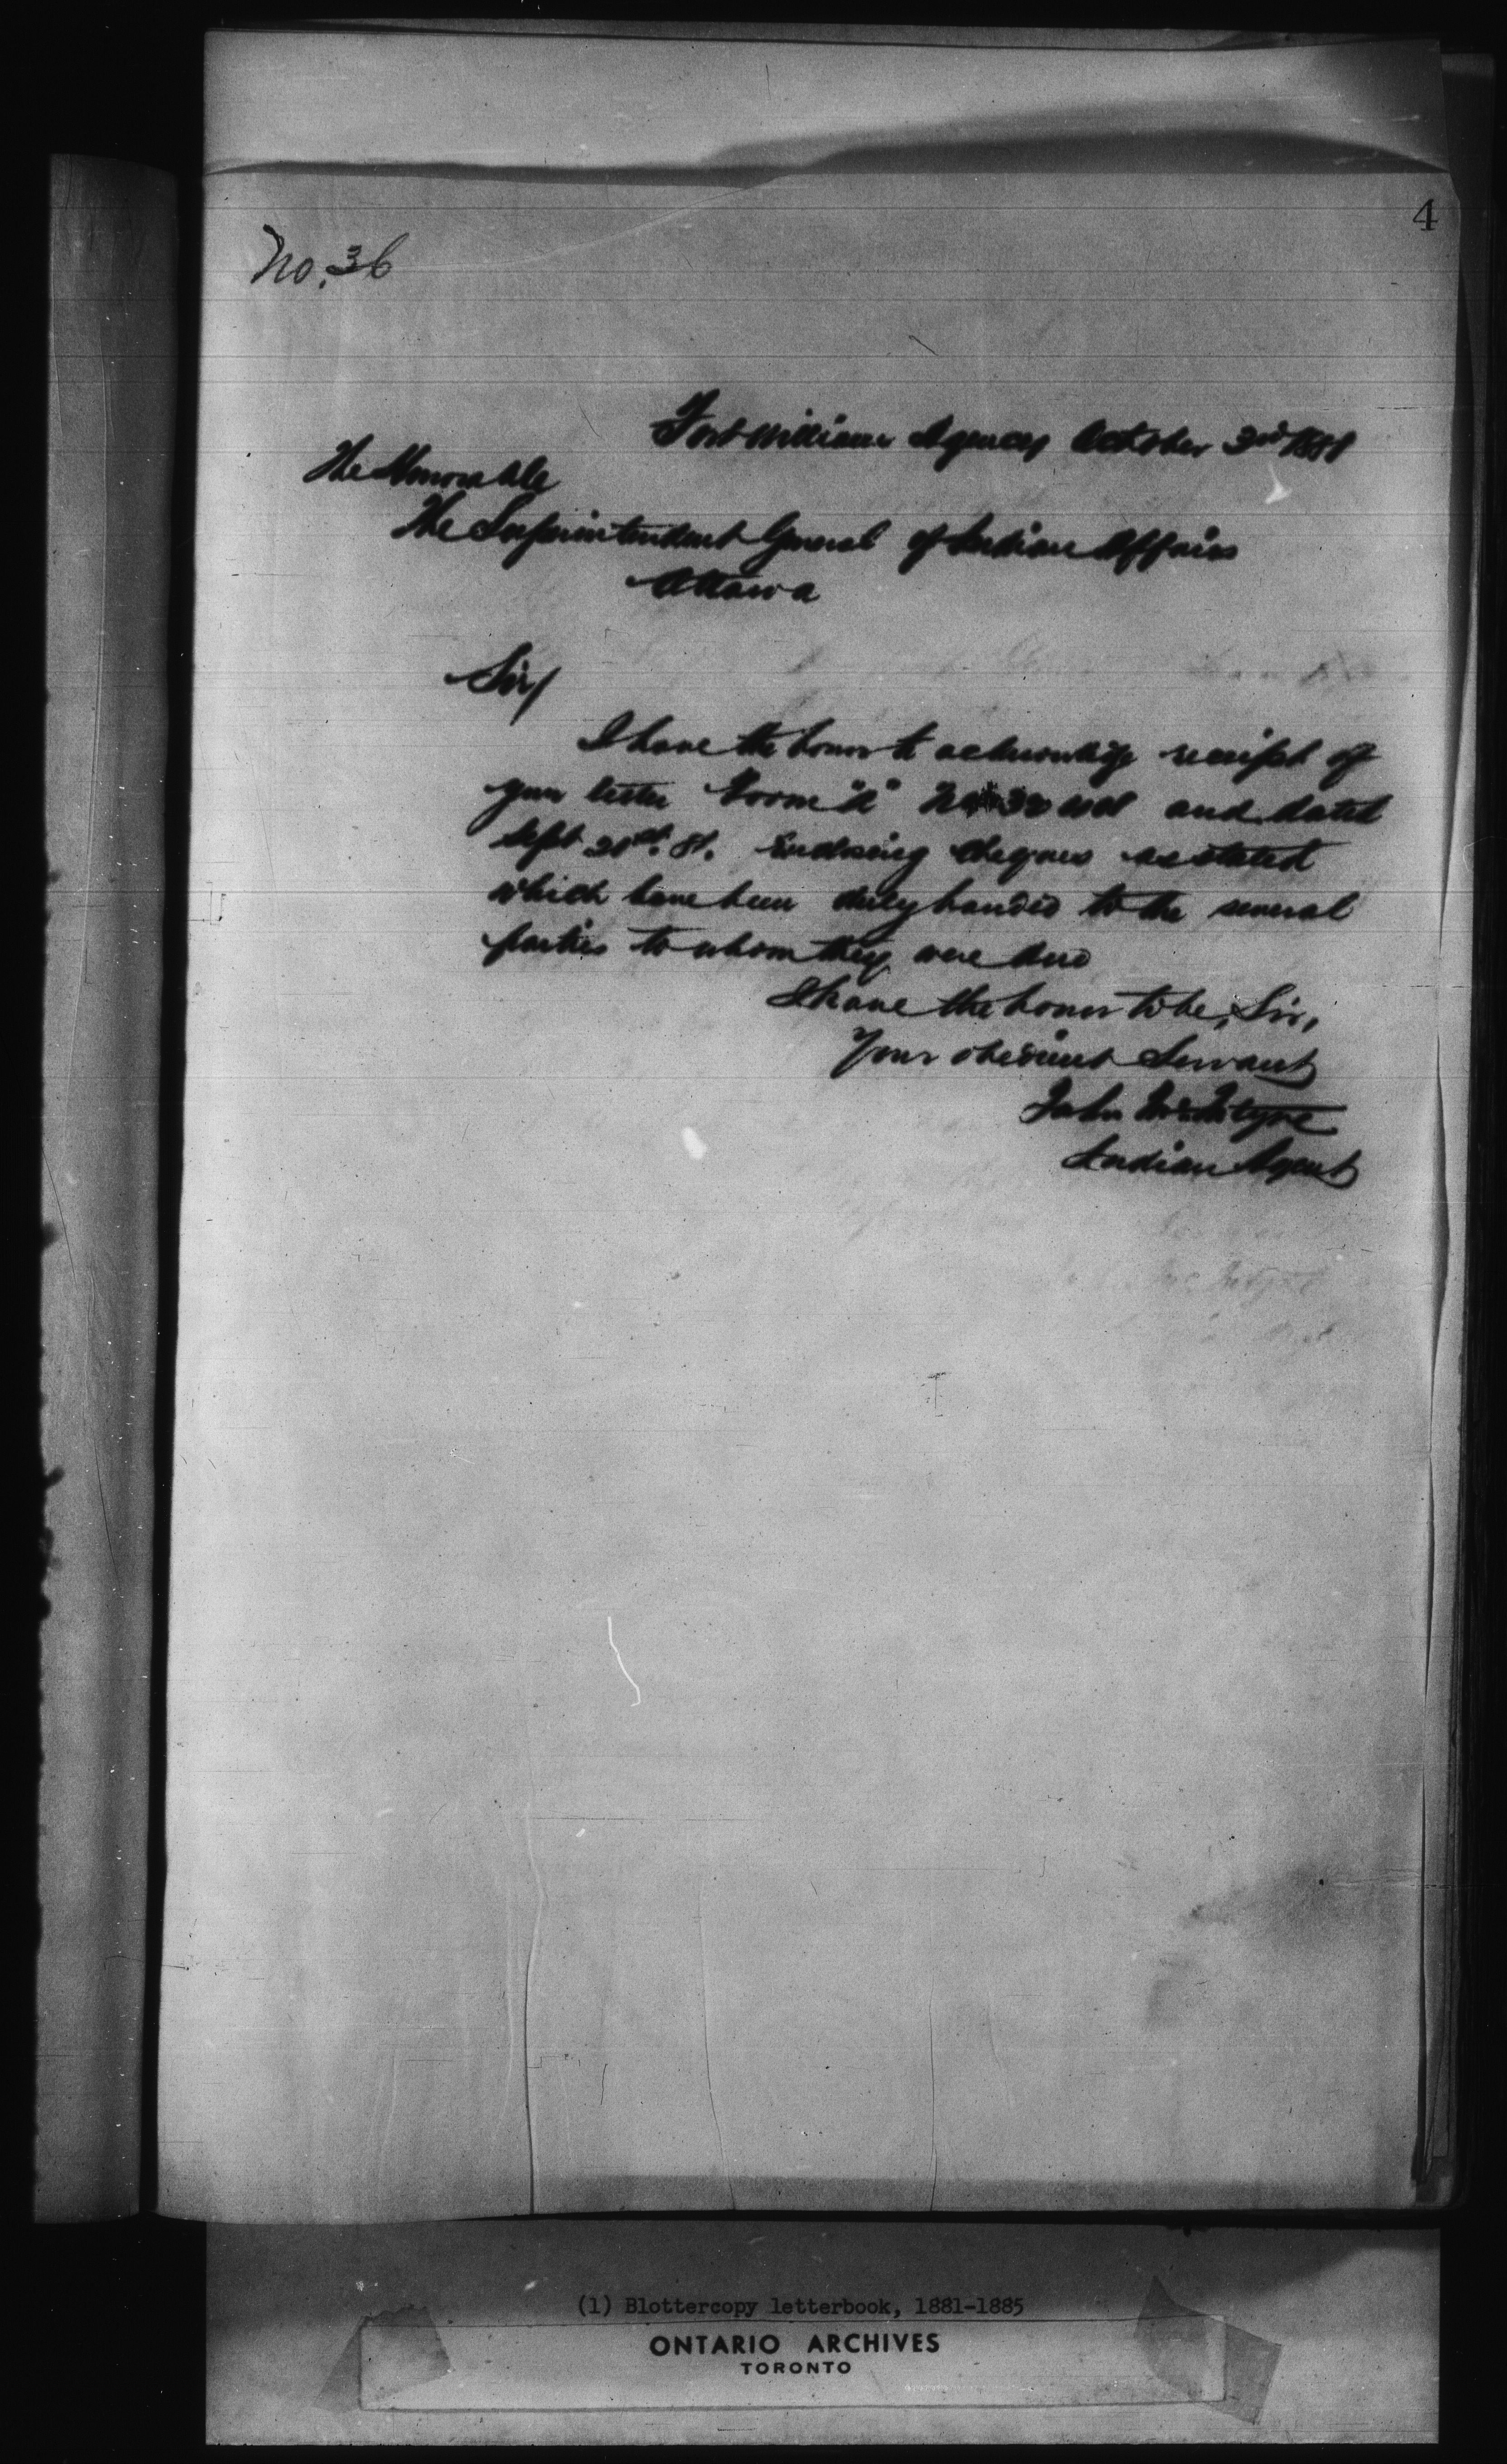 4
No. 36
Fort William Agency October 3rd 1881
The Honorable
The Superintendent General of Indian Affairs
Ottawa
Sir/
I have the honor to acknowledge receipt of
your letter Form "A" and dated
Sept 81. Enclosing cheques as stated
which have been duly handed to the several
parties to whom they were due
I have the honor to be, Sir,
Your obedient Servant
John McIntyre
Indian Agent
(1) Blottercopy letterbook, 1881-1885
ONTARIO ARCHIVES
TORONTO